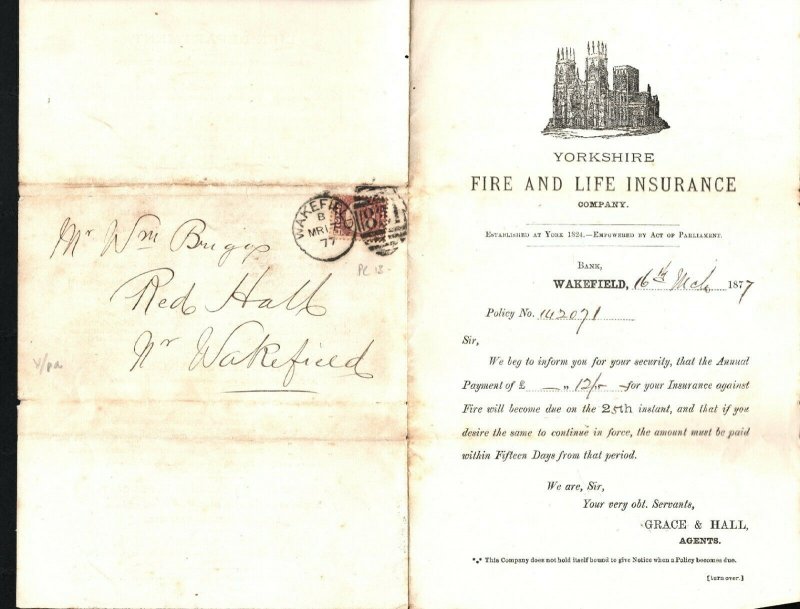 WAKEFIELD
B
MR17
77
Mr Wm Briggs
Red Hall
Nr Wakefield
YORKSHIRE
FIRE AND LIFE INSURANCE
COMPANY.
ESTABLISHED AT YORK 1824.—EMPOWERED BY ACT OF PARLIAMENT.
BANK,
WAKEFIELD, 16th Mch 1877
Policy No. 142071
Sir,
We beg to inform you for your security, that the Annual
Payment of £ — " 12/- for your Insurance against
Fire will become due on the 25th instant, and that if you
desire the same to continue in force, the amount must be paid
within Fifteen Days from that period.
We are, Sir,
Your very obt. Servants,
GRACE & HALL,
AGENTS.
*⁎* This Company does not hold itself bound to give Notice when a Policy becomes due.
[turn over.]